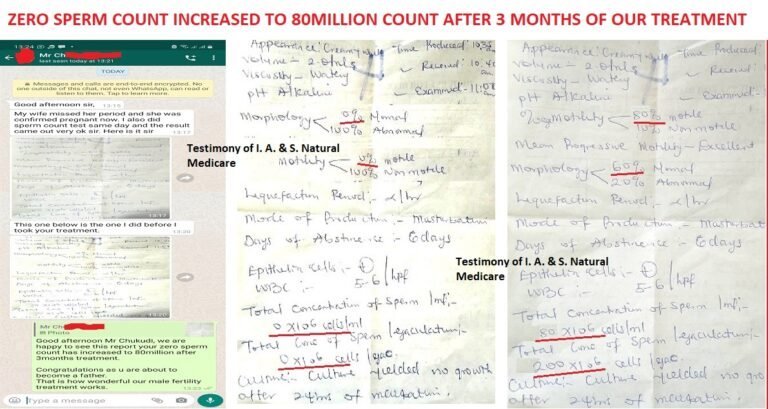 ZERO SPERM COUNT INCREASED TO 80MILLION COUNT AFTER 3 MONTHS OF OUR TREATMENT
13:24
Mr Ch
last seen today at 13:21
TODAY
Messages and calls are end-to-end encrypted. No
one outside of this chat, not even WhatsApp, can read or
listen to them. Tap to learn more.
Good afternoon sir, 13:15
My wife missed her period and she was
confirmed pregnant now. I also did
sperm count test same day and the result
came out very ok sir. Here is it sir 13:17
13:17
This one below is the one I did before I
took your treatment. 13:20
13:20
Mr Ch
Photo
Good afternoon Mr Chukudi, we are
happy to see this report your zero sperm
count has increased to 80million after
3months treatment.
Congratulations as u are about to
become a father.
That is how wonderful our male fertility
treatment works. 13:23
Type a message
Appearance: Creamy Time Produced
Volume - 2.0mls Received:
Viscosity - Watery Examined -
pH Alkaline
Morphology 0% Normal
100% Abnormal
Testimony of I. A. & S. Natural
Medicare
Motility 0% motile
100% Non motile
Liquefaction Period :- <1hr
Mode of Production :- Masturbation
Days of Abstinence :- 6days
Epithelia Cells :-
WBC :- 5-6/hpf
Total Concentration of Sperm /ml :-
0x106 cells/ml
Total Conc of Sperm /ejaculation :-
0x106 cells/ejac.
Culture :- Culture yielded no growth
after 24hrs of
Appearance: Creamy Time Produced
Volume - 2.0mls Received:
Viscosity - Watery Examined:
pH Alkaline
Motility 80% motile
10% Non motile
Mean Progressive Motility - Excellent
Morphology 60% Normal
20% Abnormal
Liquefaction Period :- <1hr
Mode of Production :- Masturbat
Days of Abstinence :- 6days
Testimony of I. A. & S. Natural
Medicare
Epithelia Cells :-
WBC :- 5-6/hpf
Total Concentration of Sperm /ml :-
80x106 cells/ml
Total Conc of Sperm /ejaculation :-
200x106 cells/ejac.
Culture :- Culture yielded no
after 24hrs of